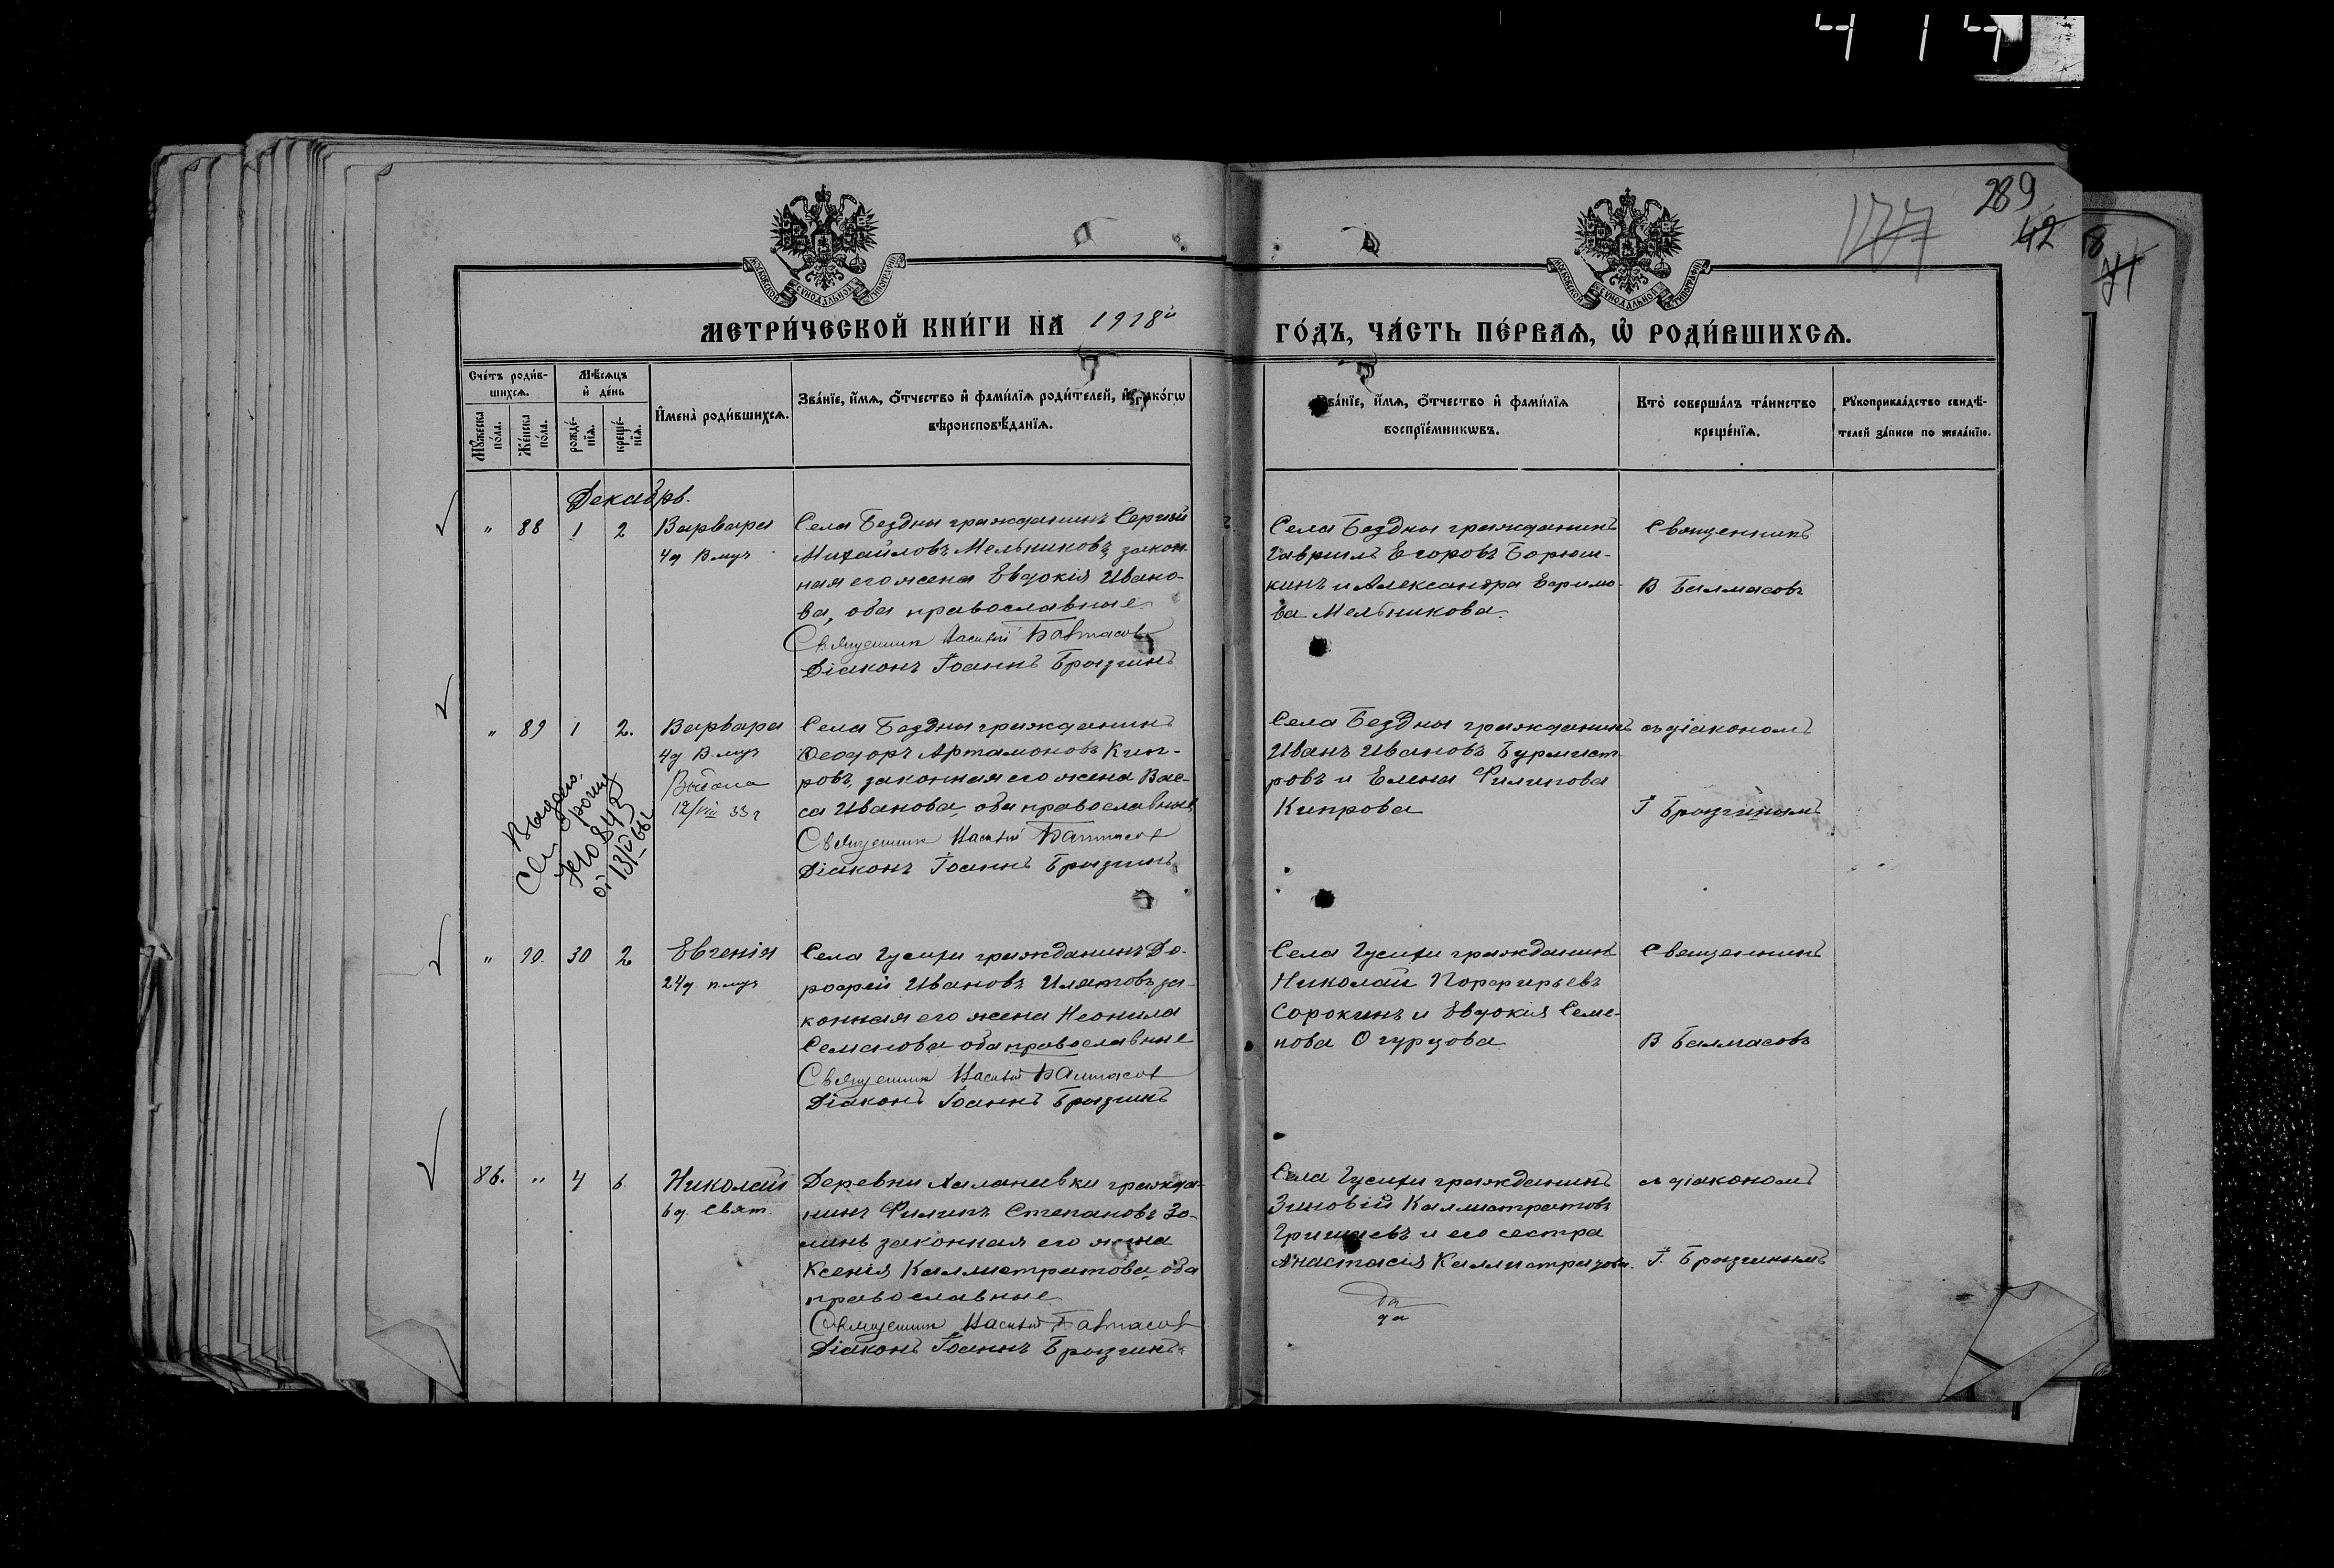 4 14
289
177
42
МОСКОВСКОЙ СУНОДАЛЬНОЙ ТИПОГРАФІИ
МОСКОВСКОЙ СУНОДАЛЬНОЙ ТИПОГРАФІИ
МЕТРИ́ЧЕСКОЙ КНИ́ГИ НА 1918й
ГО́ДЪ, ЧА́СТЬ ПЕ́РВАѦ, Ѡ РОДИ́ВШИХСѦ.
Сче́тъ роди́в-
шихсѧ.
Мѣ́сѧцъ
и҆ де́нь
Мꙋ́жеска по́ла.
Же́нска по́ла.
рожде́-
нїѧ.
креще́-
нїѧ.
И҆мена̀ роди́вшихсѧ.
Зва́нїе, и҆́мѧ, ѻ҆́тчество и҆ фами́лїѧ роди́телей, и҆ како́гѡ
вѣроисповѣ́данїѧ.
Зва́нїе, и҆́мѧ, ѻ҆́тчество и҆ фами́лїѧ
воспрїе́мникѡвъ.
Кто̀ соверша́лъ та́инство
креще́нїѧ.
Рꙋкоприкла́дство свидѣ́-
телей за́писи по жела́нїю.
Декабрь.
" 88 1 2 Варвара
4д В.муч
Села Бездны гражданинъ Сергѣй
Михайловъ Мельниковъ, закон-
ная его жена Евдокія Ивано-
ва, оба православные
Священник Василий Балмасов
Діаконъ Іоаннъ Брызгинъ
Села Бездны гражданинъ
Гавріилъ Егоровъ Борюш-
кинъ и Александра
ва Мельникова.
Священникъ
В Балмасовъ
" 89 1 2. Варвара
4д В.муч
Выдана
12/VIII 33 г
Выдано.
№ 842
от 13/
Села Бездны гражданинъ
Ѳеодоръ Артамоновъ Кип-
ровъ, законная его жена Вас-
са Иванова, оба православные
Священник Василий Балмасов
Діаконъ Іоаннъ Брызгинъ
Села Бездны гражданинъ
Иванъ Ивановъ Бурмист-
ровъ и Елена Филипова
Кипрова
съ діакономъ
І Брызгинымъ
" 90. 30 2 Евгенія
24д п.муч
Села Гусихи гражданинъ До-
рофей Ивановъ Илатовъ за-
конная его жена Неонила
Семенова оба православные
Священник Василий Балмасов
Діаконъ Іоаннъ Брызгинъ
Села Гусихи гражданинъ
Николай Порфирьевъ
Сорокинъ и Евдокія Семе-
нова Огурцова
Священникъ
В Балмасовъ
86. " 4 6 Николай
6д. Свят.
Деревни Ананьевки гражда-
нинъ Филипъ Степановъ Зо-
линъ законная его жена
Ксенія Каллистратова, оба
православные
Священник Василий Балмасов
Діаконъ Іоаннъ Брызгинъ
Села Гусихи гражданинъ
Зиновій Каллистратовъ
Гришаевъ и его сестра
Анастасія
съ діакономъ
І. Брызгинымъ